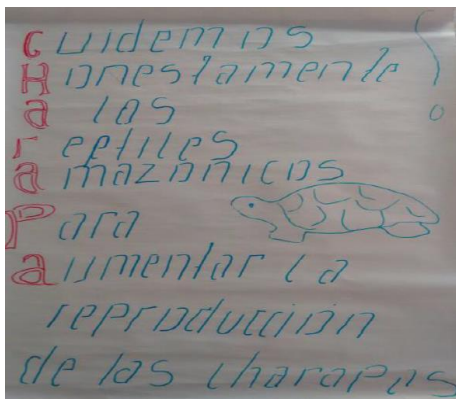 cuidemos
Honestamente !
a las
reptiles
amazonicos
Para
aumentar la
reproduccion
de las charapas